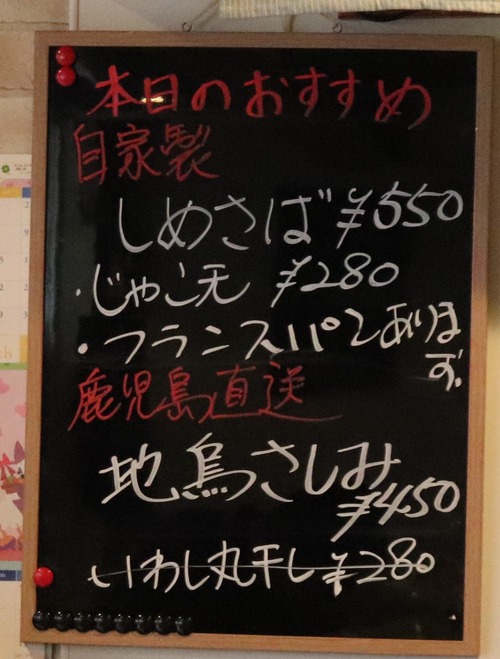 本日のおすすめ
自家製
しめさば ¥550
・じゃこ天 ¥280
・フランスパンありま
す。
鹿児島直送
地鳥さしみ
¥450
いわし丸干し ¥280